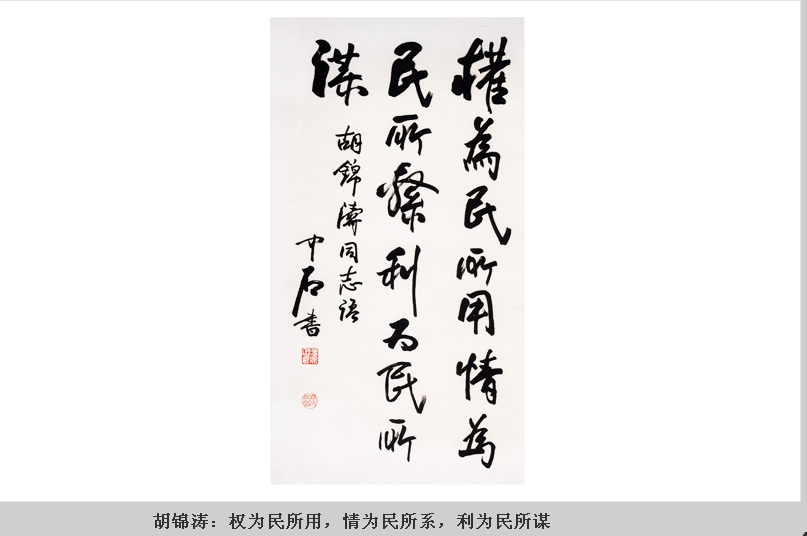 權為民所用情為
民所繫利为民所
謀
胡錦濤同志語
中石書
胡锦涛：权为民所用，情为民所系，利为民所谋